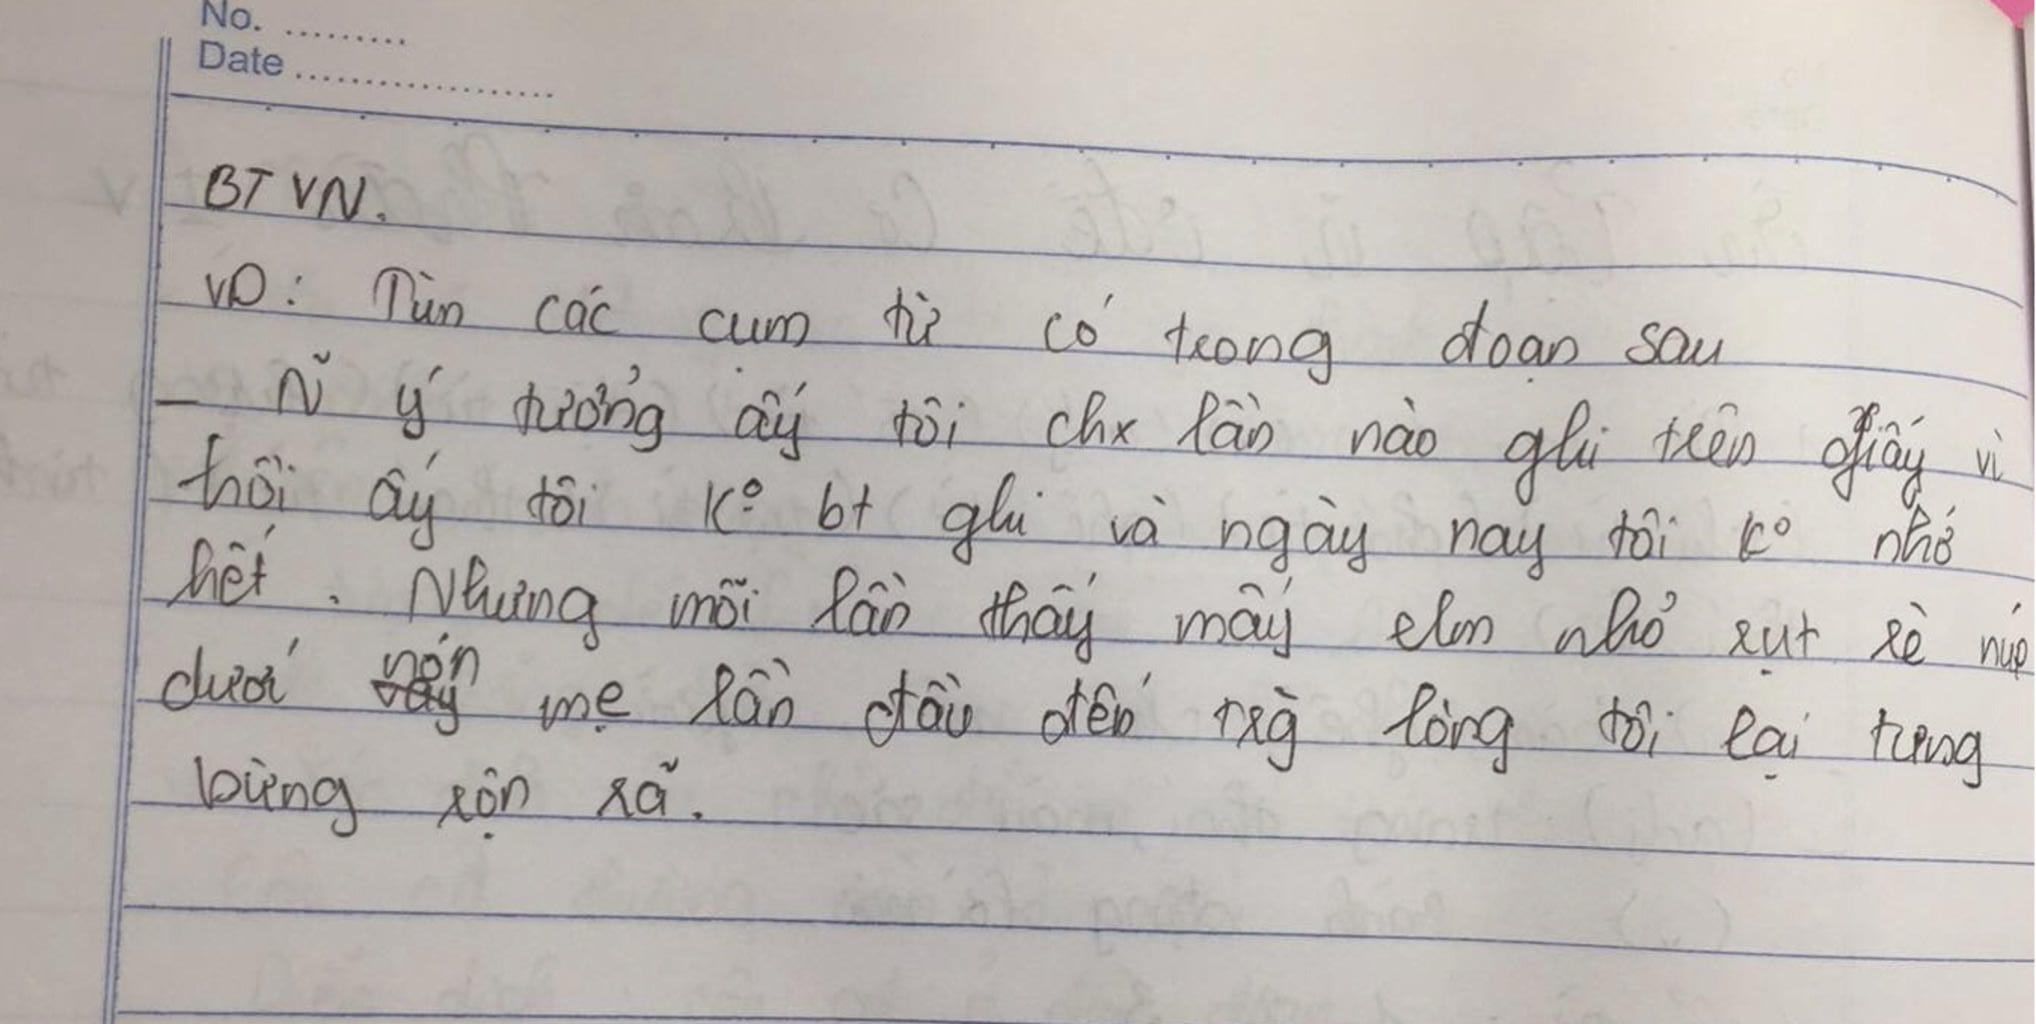 No. .........
Date ...................
BTVN.
VD: Tìm các cụm từ có trong đoạn sau
- Ñ ý tưởng ấy tôi chx lần nào ghi trên giấy vì
hồi ấy tôi ko bt ghi và ngày nay tôi ko nhớ
hết. Nhưng mỗi lần thấy mấy em nhỏ rụt rè núp
dưới nón mẹ lần đầu đến trg lòng tôi lại tưng
bừng rộn rã.